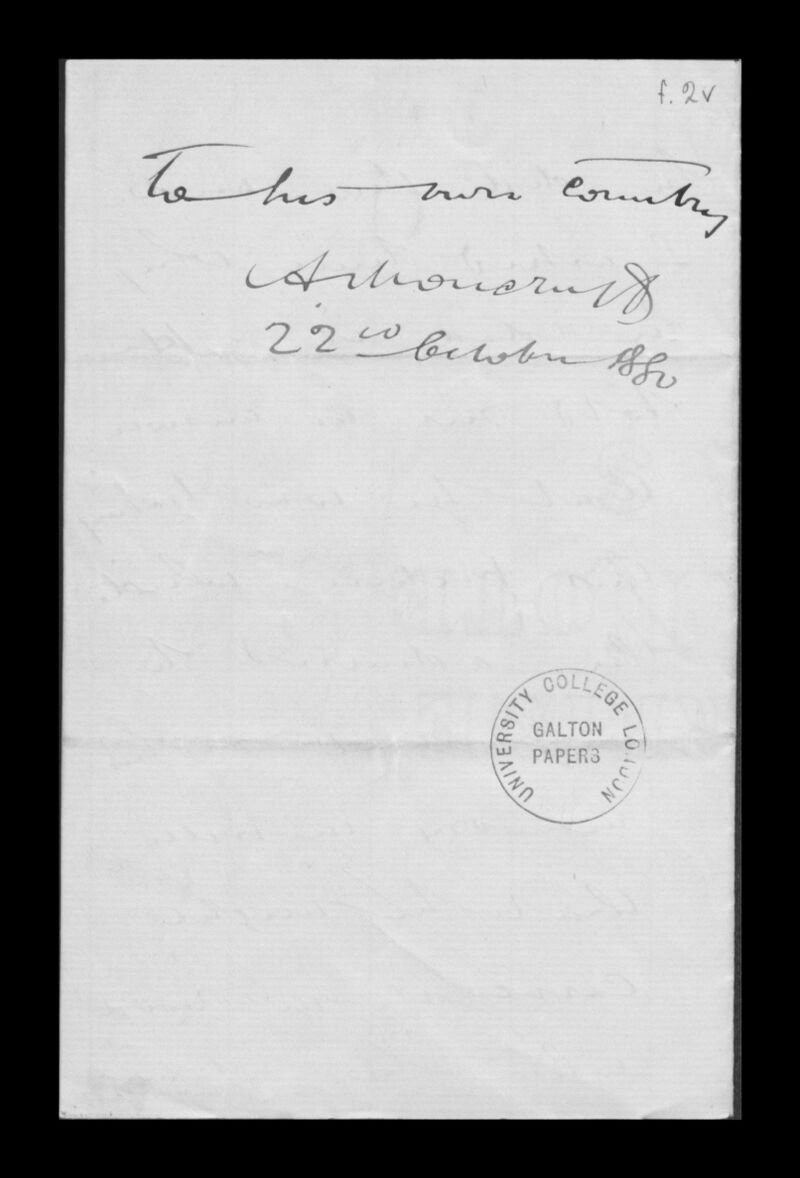 f. 2v
To his own Country
A Moncrieff
22nd October 1880
UNIVERSITY COLLEGE LONDON
GALTON
PAPERS